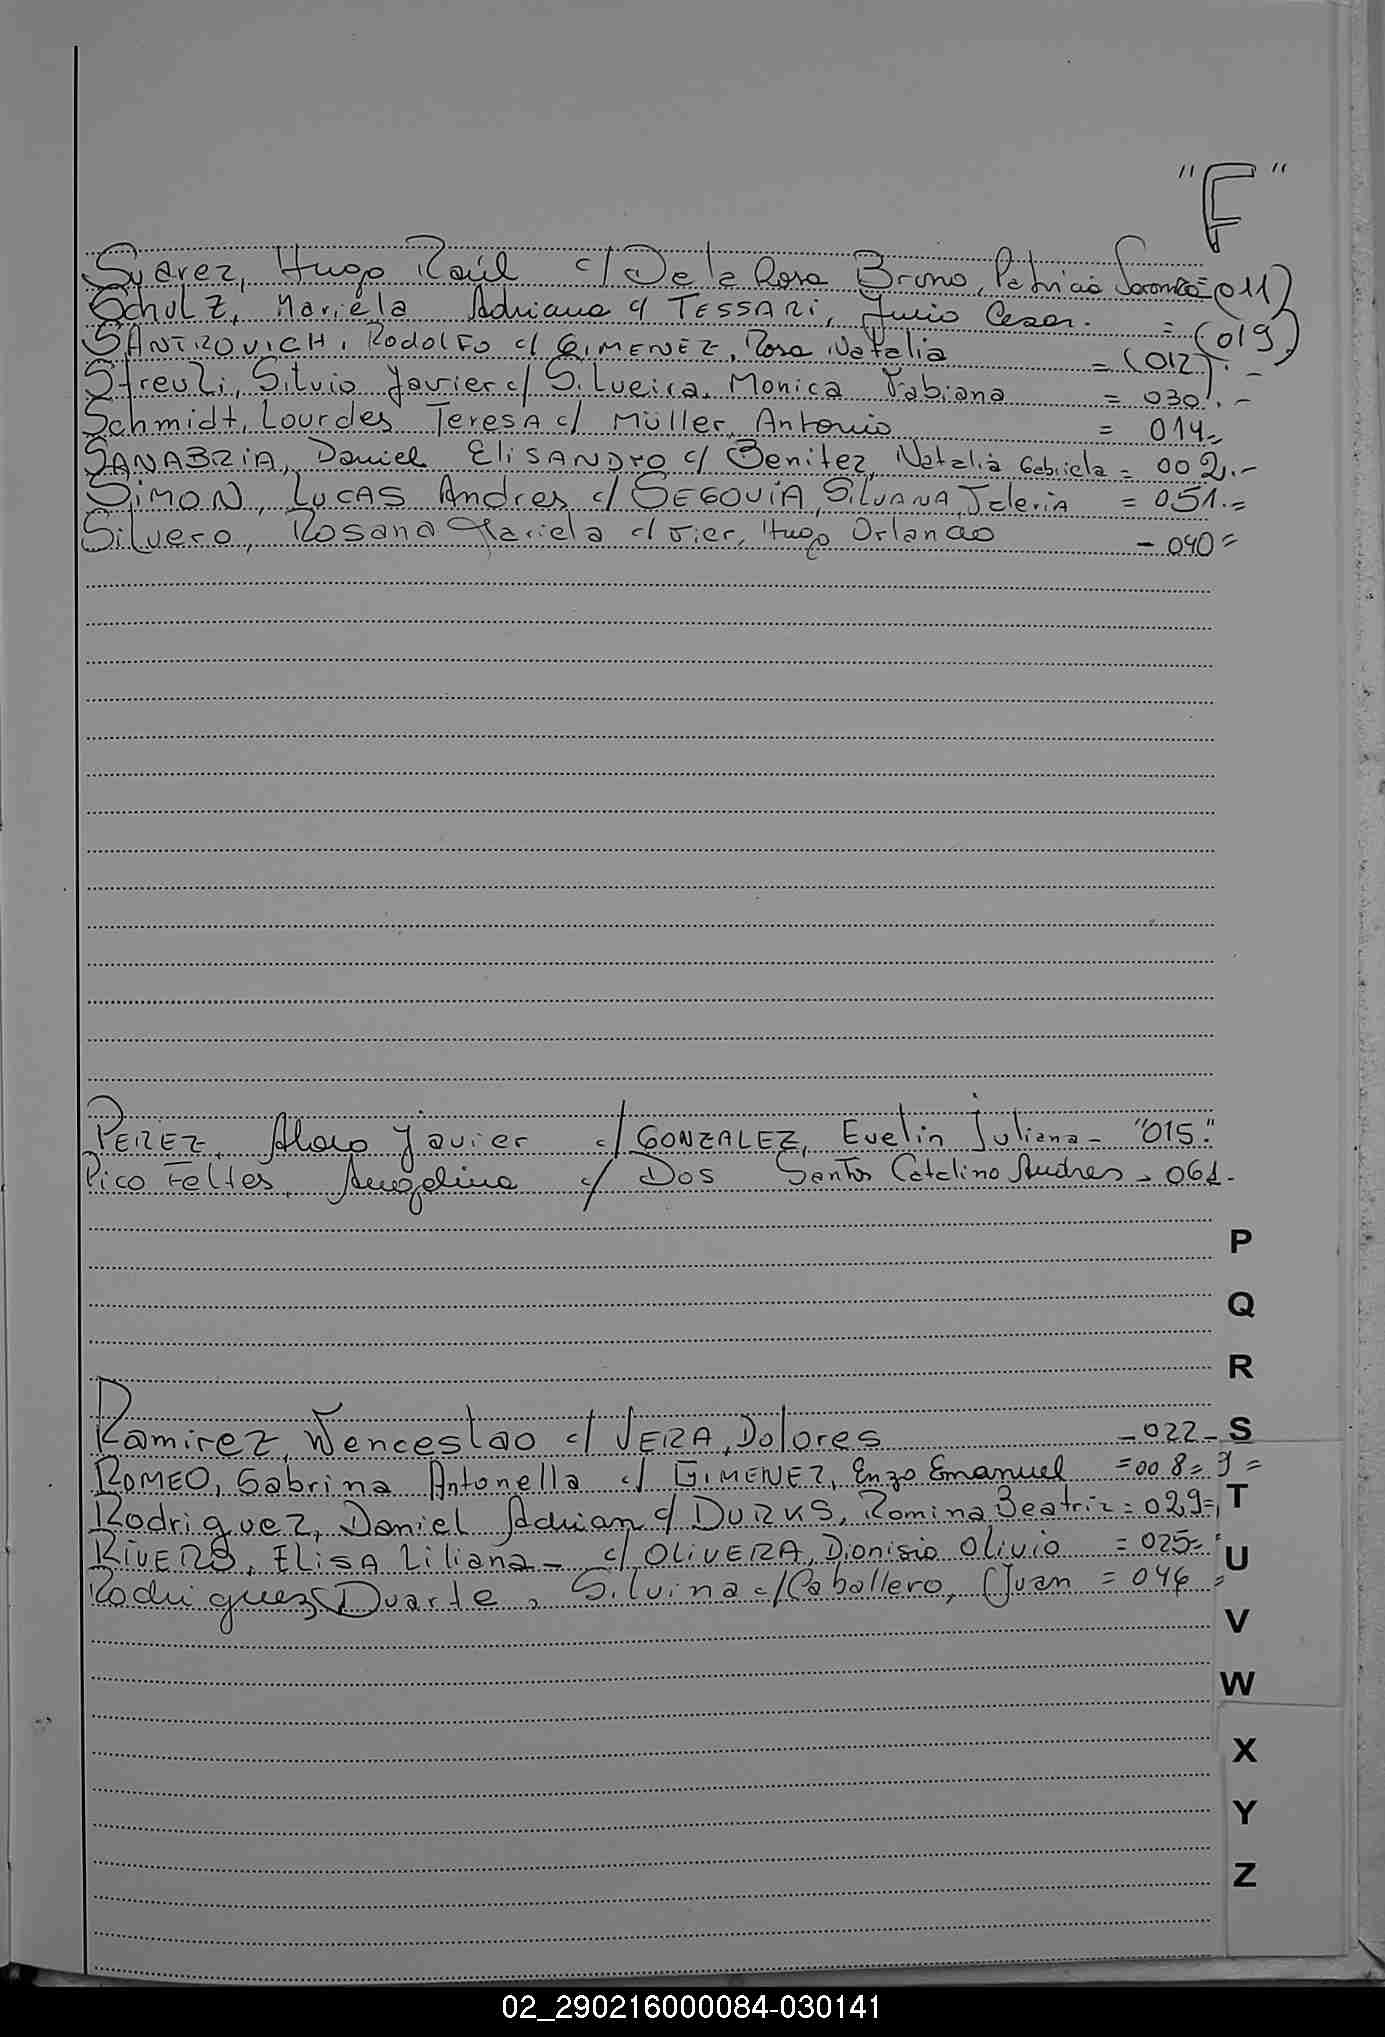 "F"
Suarez, Hugo Raúl c/ De la Rosa Bruno, Patricia = (011)
Schulz, Mariela Adriana c/ TESSARI, Julio Cesar. = (019)
SANTROVICH, Rodolfo c/ GIMENEZ, Rosa Natalia = (012).-
Streuli, Silvio Javier c/ Silveira, Monica Fabiana = 030.-
Schmidt, Lourdes Teresa c/ Müller, Antonio = 014=
SANABRIA, Daniel Elisandro c/ Benitez, Natalia Gabriela = 002.-
SIMON, LUCAS Andres c/ SEGOVIA, SILVANA = 051.=
Silvero, Rosana Mariela c/ Hugo Orlando - 040=
PEREZ, Javier c/ GONZALEZ, Evelin Juliana- "015."
Pico Feltes, Angelina c/ Dos Santos Catalino Andres - 061-
P
Q
R
Ramirez, Wenceslao c/ VERA, Dolores - 022 -
S
ROMEO, Sabrina Antonella c/ GIMENEZ, Enzo Emanuel = 008= 9=
Rodriguez, Daniel Adrian c/ DURKS, Romina Beatriz = 029=
T
RIVERO, ELISA Liliana - c/ OLIVERA, Dionisio Olivio = 025=
U
Rodriguez Duarte, Silvina c/ Caballero, Juan = 046 =
V
W
X
Y
Z
02_290216000084-030141